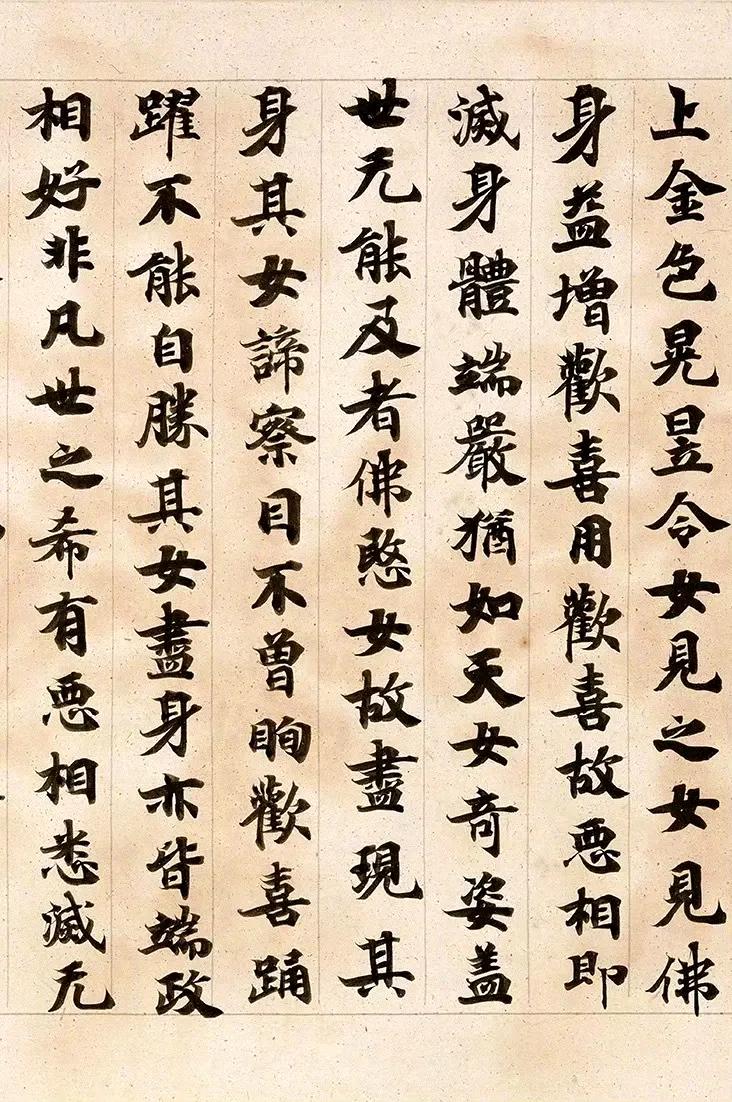 上金色晃昱令女見之女見佛
身益增歡喜用歡喜故惡相即
滅身體端嚴猶如天女奇姿蓋
世无能及者佛愍女故盡現其
身其女諦察目不曾眴歡喜踊
躍不能自勝其女盡身亦皆端政
相好非凡世之希有惡相悉滅无